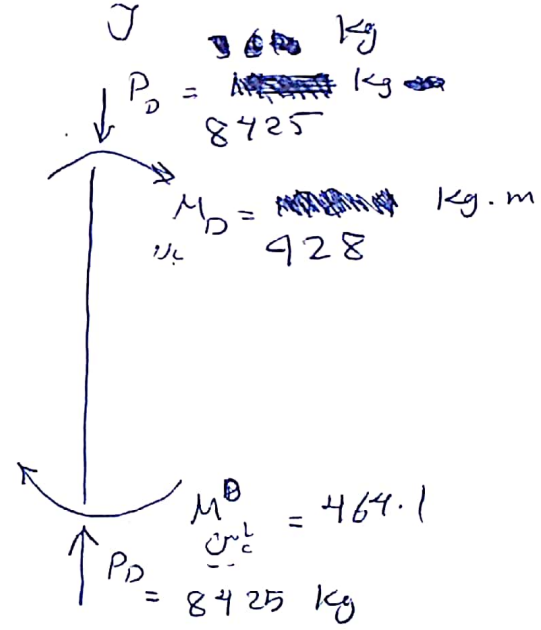 Kg
P_D = Kg
8425
M_D = Kg.m
بالا
428
M^D = 464.1
P_D = 8425 Kg